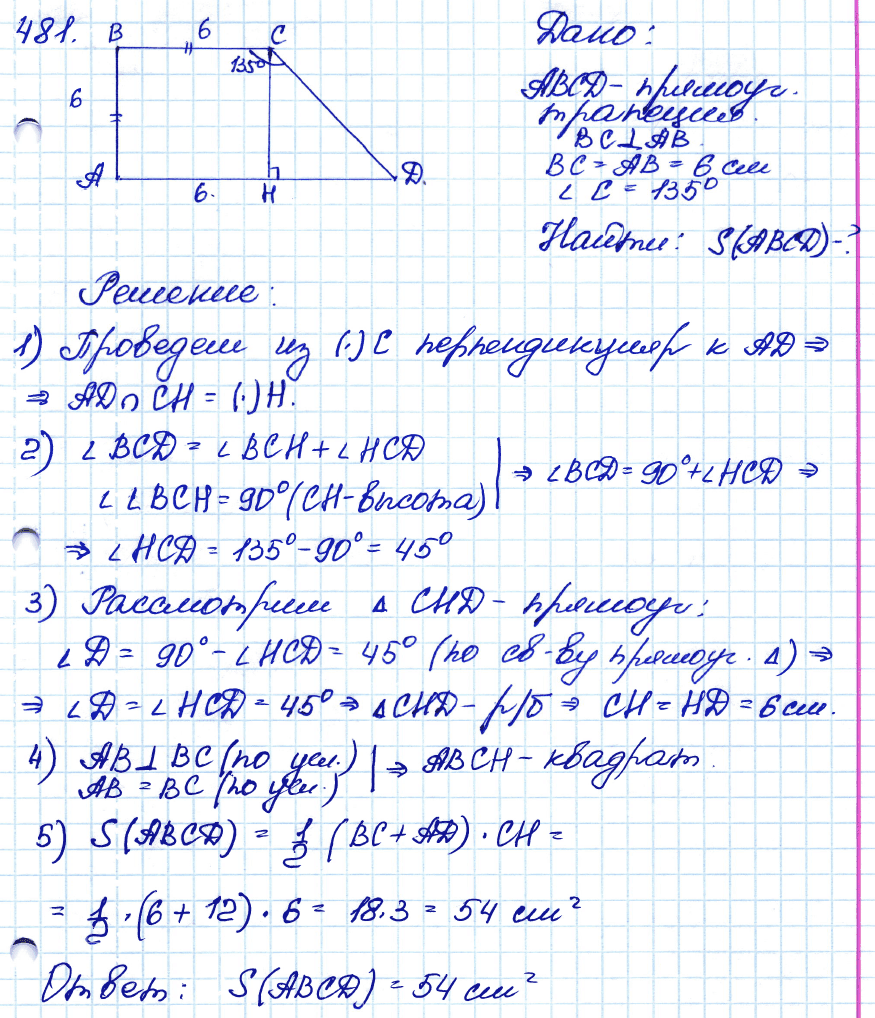 481.
B 6 C
135°
6
A 6. H D.
Дано:
ABCD - прямоуг.
трапеция.
BC⊥AB.
BC = AB = 6 см
∠ C = 135°
Найти: S(ABCD)-?
Решение:
1) Проведем из (·)C перпендикуляр к AD ⇒
⇒ AD∩CH = (·)H.
2) ∠BCD = ∠BCH + ∠HCD
∠ ∠BCH = 90° (CH-высота)
⇒ ∠BCD = 90° + ∠HCD ⇒
⇒ ∠HCD = 135° - 90° = 45°
3) Рассмотрим Δ CHD - прямоуг:
∠D = 90° - ∠HCD = 45° (по св-ву прямоуг. Δ) ⇒
⇒ ∠D = ∠HCD = 45° ⇒ ΔCHD - р/б ⇒ CH = HD = 6 см.
4) AB⊥BC (по усл.)
AB = BC (по усл.)
⇒ ABCH - квадрат.
5) S(ABCD) = 1/2 (BC + AD) · CH =
= 1/2 · (6 + 12) · 6 = 18·3 = 54 см²
Ответ: S(ABCD) = 54 см²